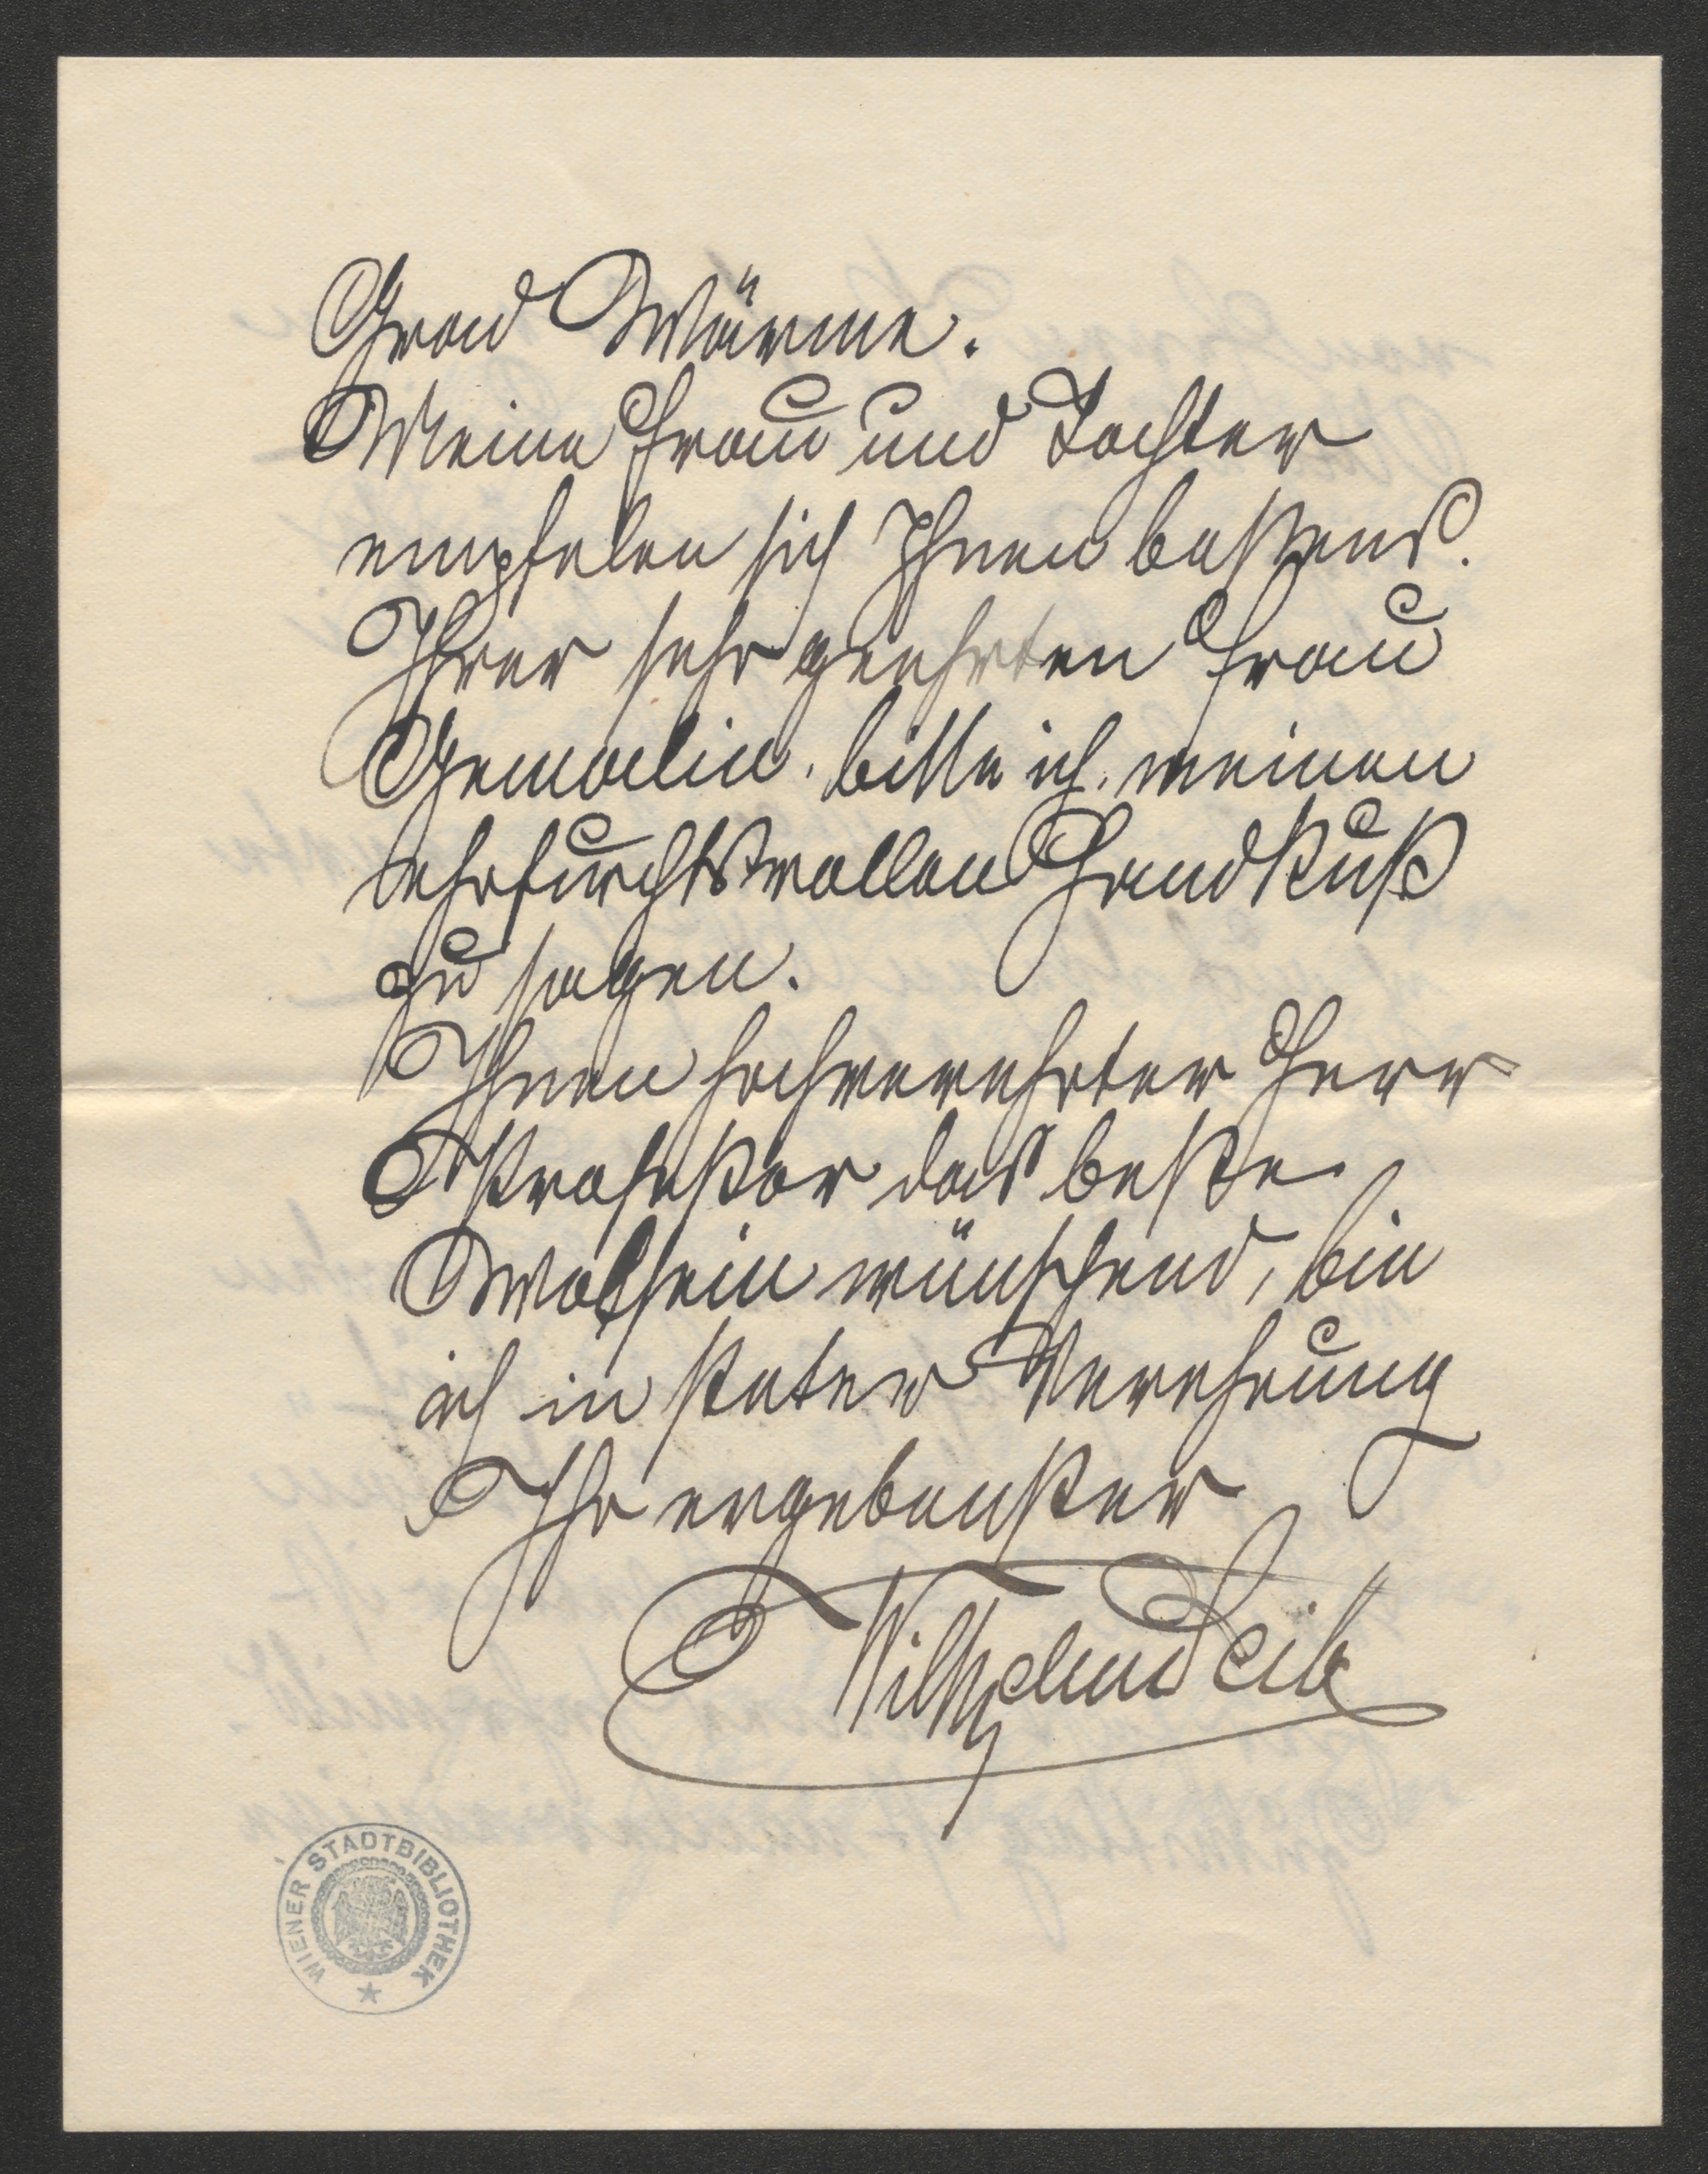 Grad Wärme.
Meine Frau und Tochter
empfelen sich Ihnen bestens.
Ihrer sehr geehrten Frau
Gemalin bitte ich meinen
ehrfurchtsvollen Handkuß
zu sagen.
Ihnen hochverehrter Herr
Profeßor das beste
Wolsein wünschend, bin
ich in steter Verehrung
Ihr ergebenster
Wilhelm Seib
WIENER STADTBIBLIOTHEK